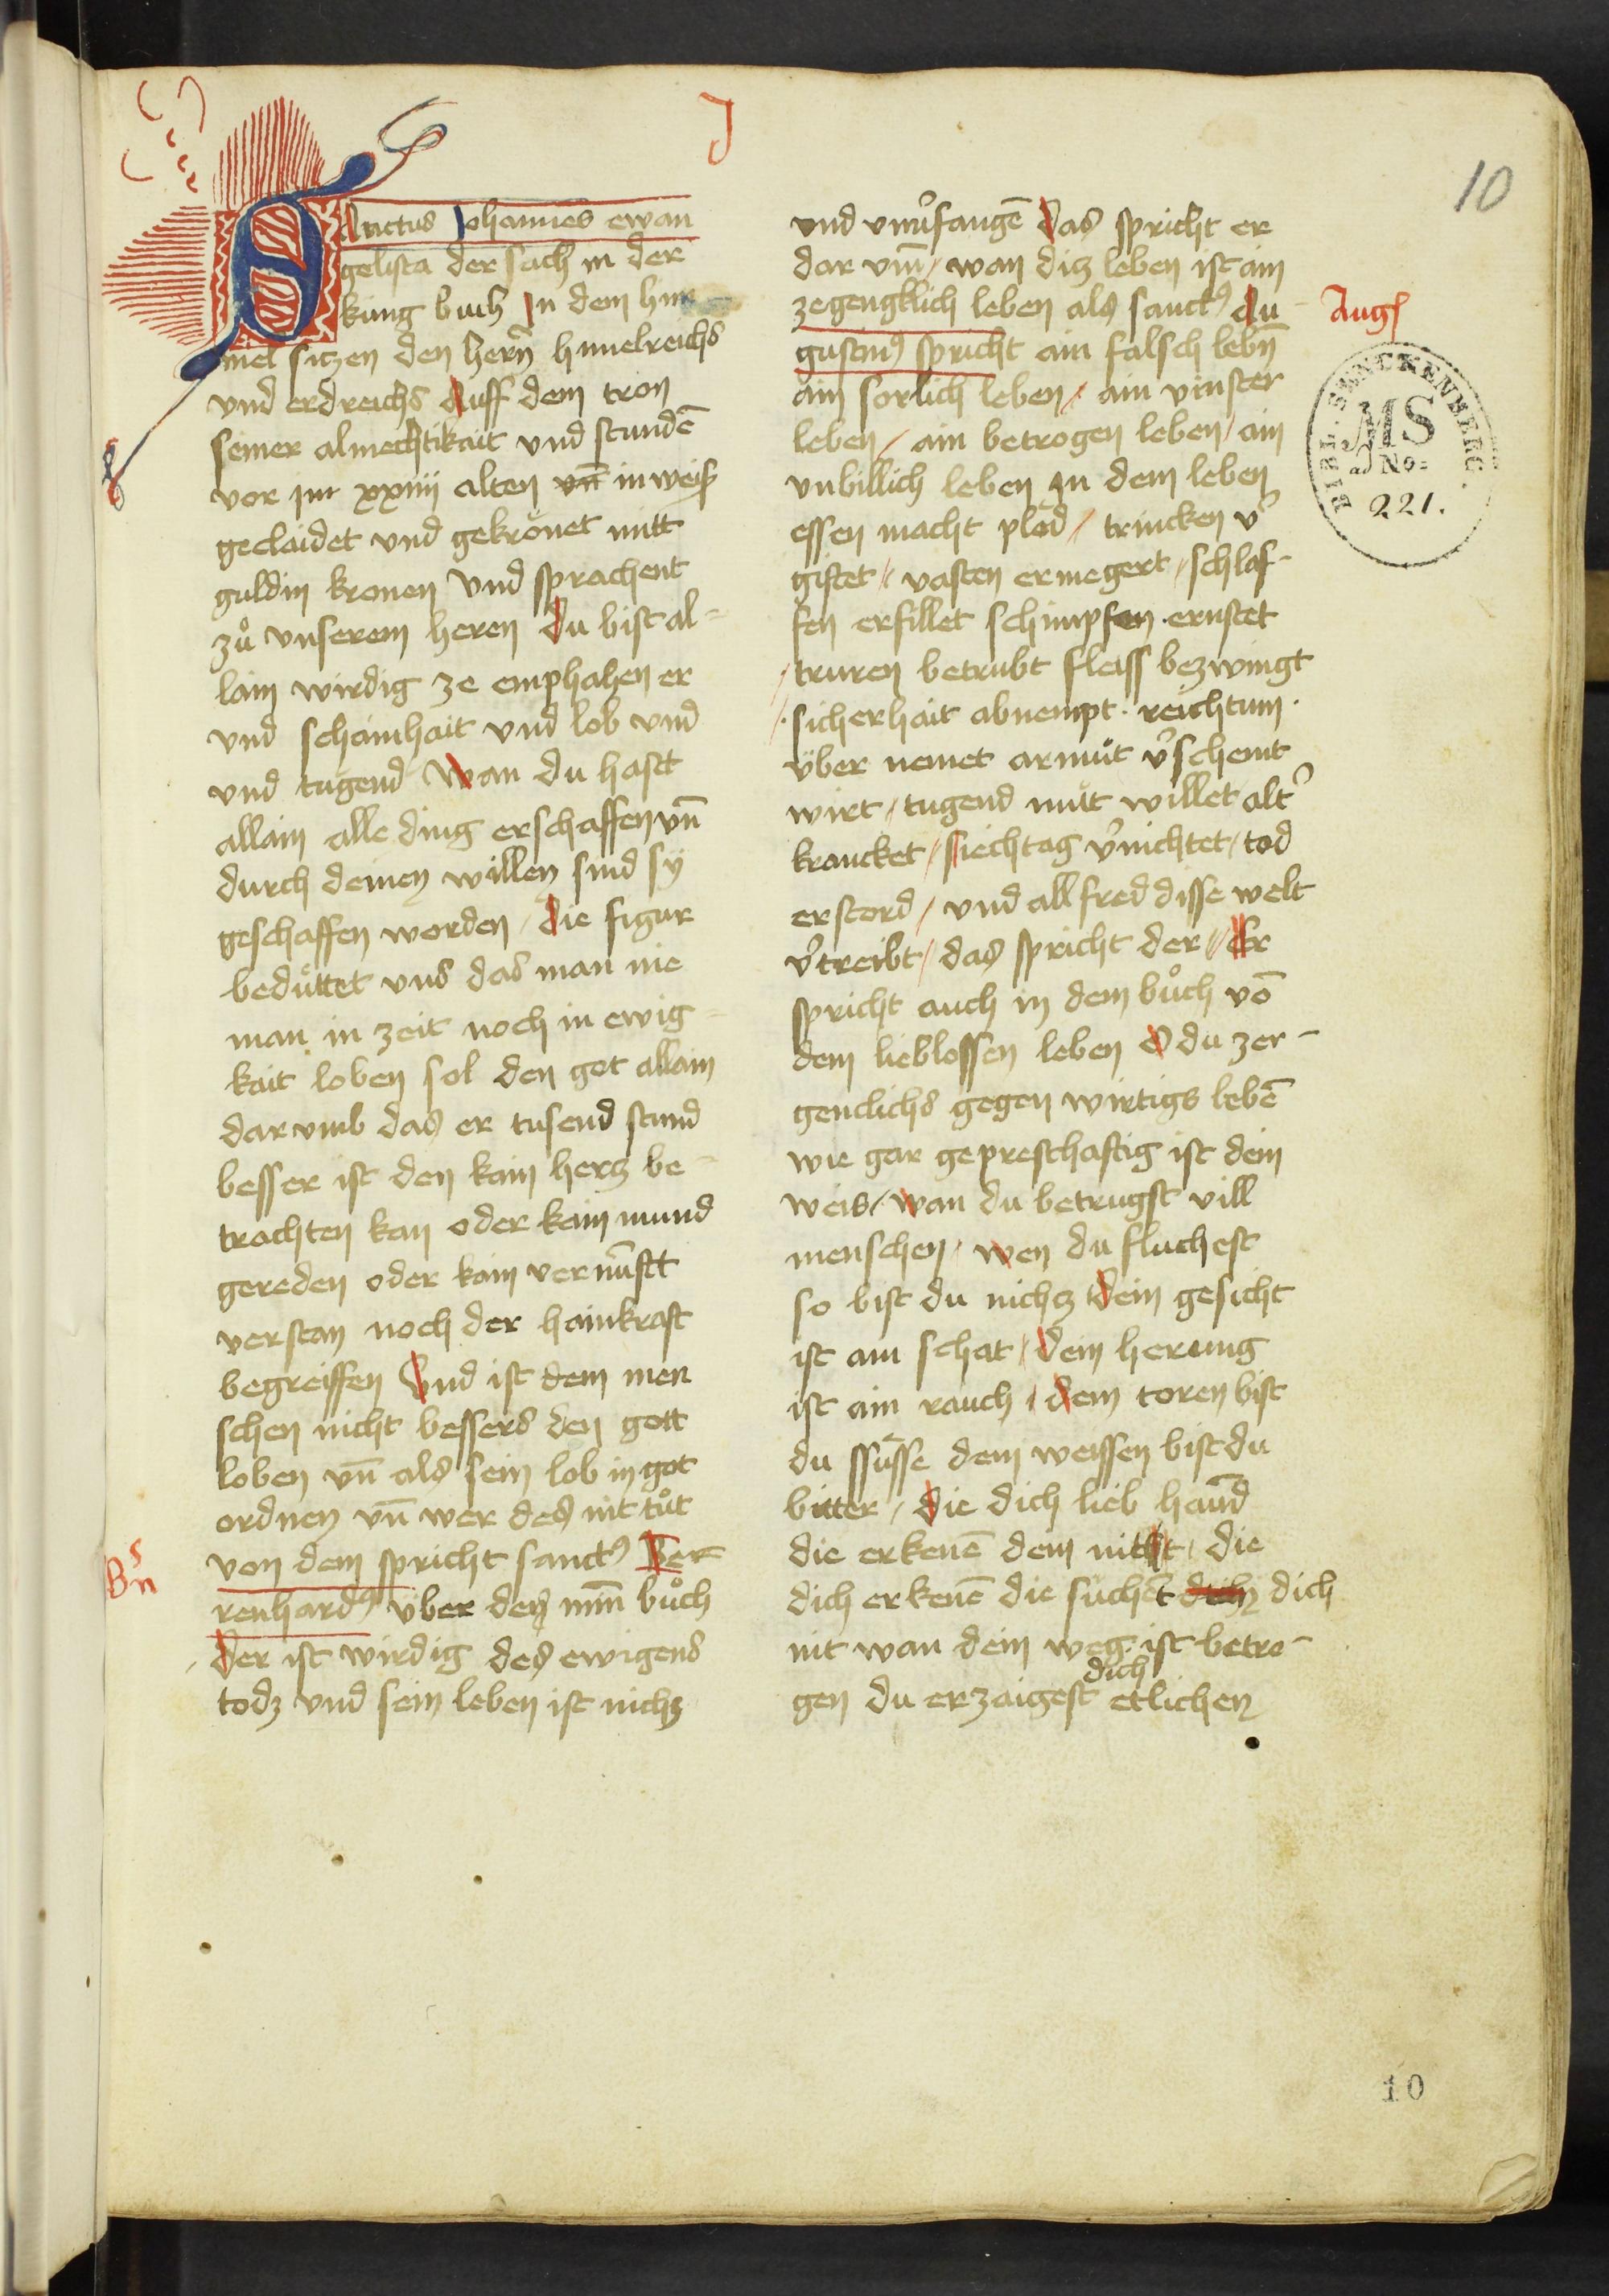 J
10
SAnctus Johannes ewan
gelista der sach in der
kung buch In dem him
mel sitzen den herñ himelreichs
vnd erdreichs Auff dem tron
seiner almechtikait vnd stundē
vor im xxiiii alten vn̄ in weiſ
geclaidet vnd gekrönet mitt
guldin kronen Vnd sprachent
zů vnserem heren Du bist al-
lain wirdig ze emphahen er
vnd schainhait vnd lob vnd
vnd tugend Wan du hastt
allain alle ding erschaffen vn̄
durch deinen willen sind sÿ
geschaffen worden / Die figur
bedüttet vns das man nie
man in zeit noch in ewig-
kait loben sol den got allain
dar vmb das er tusend stund
besser ist den kain hertz be-
trachten kan oder kain mund
gereden oder kain vernūftt
verstan noch der hainkraft
begreiffen Vnd ist dem men
schen nicht bessers den gott
loben vn̄ als sein lob in got
ordnen vn̄ wer des nit tůt
von dem spricht sanctꝰ Ber
renhardꝰ über den nūn bůch
Der ist wirdig des ewigens
todz vnd sein leben ist nichz
Bns
vnd vnuͦfangē Das spricht er
dar vm̄ / wan ditz leben ist ain
zegengklich leben als sanctꝰ Au-
gustinꝰ spricht ain falsch lebn̄
ain sorlich leben / ain vinster
leben / ain betrogen leben / ain
vnbillich leben Jn dem leben
essen macht plöd / trincken v̉
giftet / vasten ermegert / schlaf-
fen erfillet schimpfen · ernstet
/ truren betrubt fleiss bezwingt
/ · sicherhait abnempt · reichtum ·
über nemet armůt v̉schemt
wirt / tugend můt willet alt̉
krancket / siechtag v̉nichtet / tod
erstord / vnd all fred disse welt
v̉treibt / das spricht der / Er
spricht auch in dem bůch vō
dem lieblossen leben O du zer-
genclichs gegen wirtigs lebē
wie gar gepresthaftig ist dein
weis / wan du betrugst vill
menschen / wen du fluchest
so bist du nichz Dein gesicht
ist ain schat / Dein herung
ist ain rauch / Dem toren bist
du ssüsse dem weissen bist du
bitter / Die dich lieb hand
die erkenē dein nit / die
dich erkenē die suchēt dich dich
nit wan dein weg ist betro-
gen du erzaigest dich etlichen
Augꝰ
BIBL. SENCKENBERG.
MS
No:
221.
10